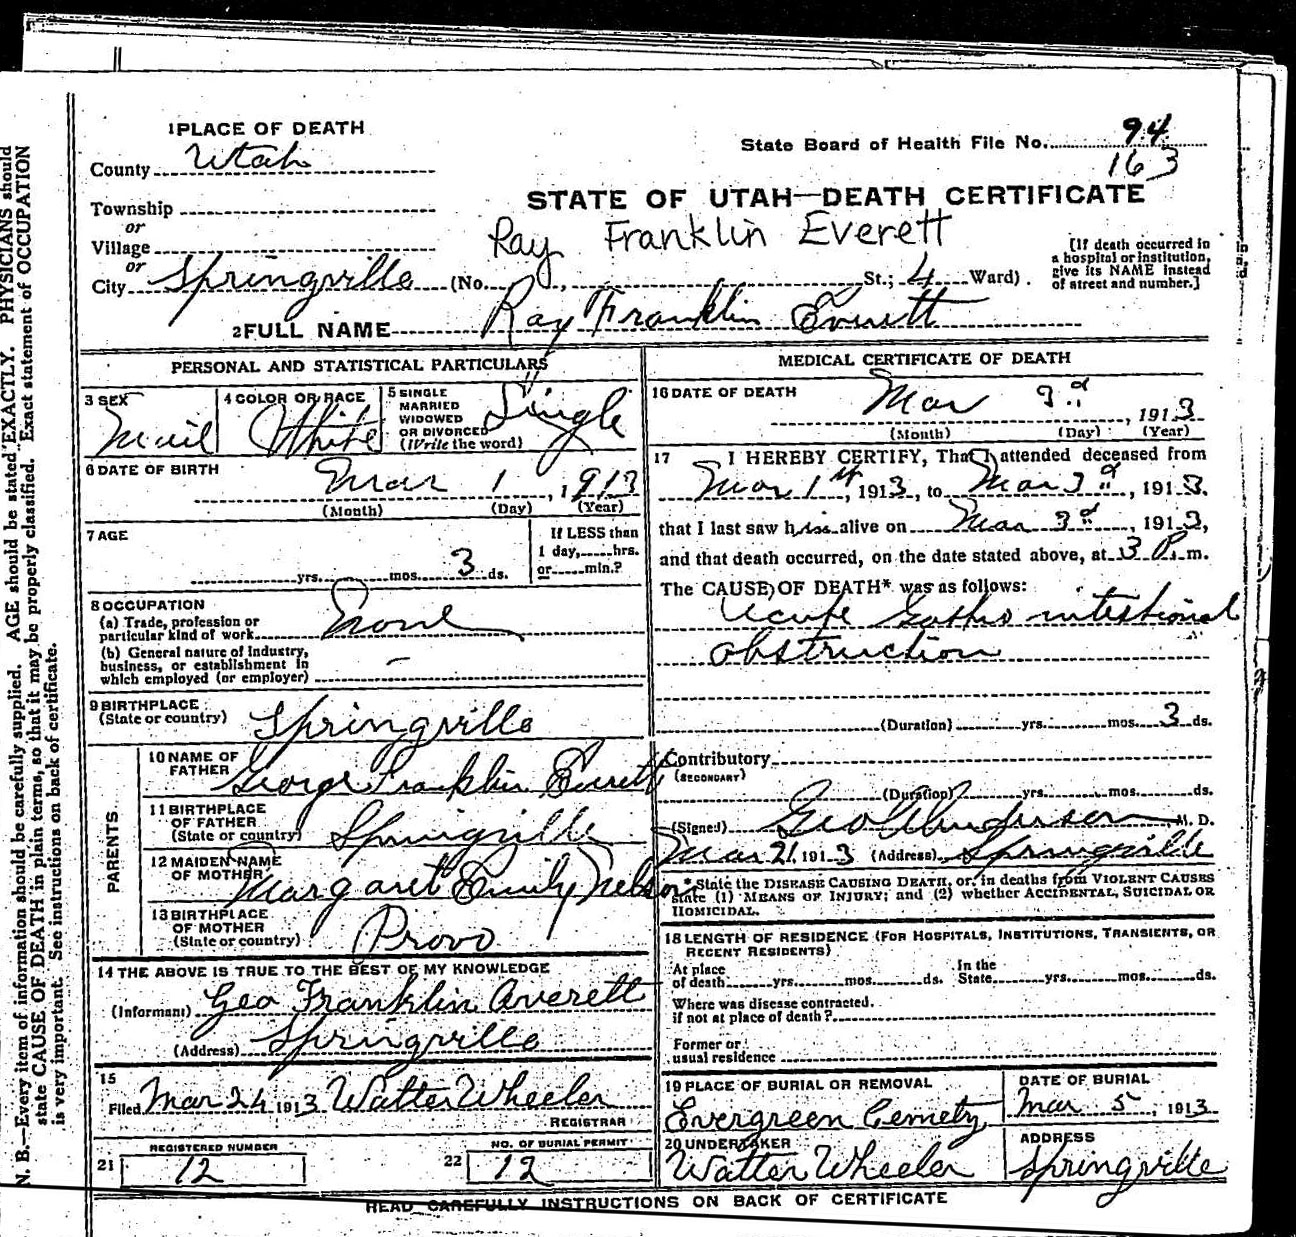 1 PLACE OF DEATH
County Utah
Township
or
Village
or
City Springville (No. , St.; 4 Ward)
State Board of Health File No. 94
163
STATE OF UTAH—DEATH CERTIFICATE
Ray Franklin Everett
[If death occurred in
a hospital or institution,
give its NAME instead
of street and number.]
2 FULL NAME Ray Franklin Everett
PERSONAL AND STATISTICAL PARTICULARS
3 SEX
Mail
4 COLOR OR RACE
White
5 SINGLE
MARRIED
WIDOWED
OR DIVORCED
(Write the word)
Single
6 DATE OF BIRTH
Mar 1, 1913
(Month) (Day) (Year)
7 AGE
yrs. mos. 3 ds.
If LESS than
1 day, hrs.
or min.?
8 OCCUPATION
(a) Trade, profession or
particular kind of work None
(b) General nature of industry,
business, or establishment in
which employed (or employer) —
9 BIRTHPLACE
(State or country) Springville
PARENTS
10 NAME OF
FATHER George Franklin Everett
11 BIRTHPLACE
OF FATHER
(State or country) Springville
12 MAIDEN NAME
OF MOTHER Margaret Emily Nelson
13 BIRTHPLACE
OF MOTHER
(State or country) Provo
14 THE ABOVE IS TRUE TO THE BEST OF MY KNOWLEDGE
(Informant) Geo Franklin Averett
(Address) Springville
15
Filed Mar 24 1913 Walter Wheeler
REGISTRAR
REGISTERED NUMBER
21 12
NO. OF BURIAL PERMIT
22 12
MEDICAL CERTIFICATE OF DEATH
16 DATE OF DEATH
Mar 3d, 1913
(Month) (Day) (Year)
17 I HEREBY CERTIFY, That I attended deceased from
Mar 1st, 1913, to Mar 3d, 1913.
that I last saw him alive on Mar 3d, 1913,
and that death occurred, on the date stated above, at 3 P.m.
The CAUSE OF DEATH* was as follows:
Acute Gastro intestional
obstruction
(Duration) yrs. mos. 3 ds.
Contributory
(SECONDARY)
(Duration) yrs. mos. ds.
(Signed) Geo Anderson M. D.
Mar 21, 1913 (Address) Springville
*State the DISEASE CAUSING DEATH, or, in deaths from VIOLENT CAUSES
state (1) MEANS OF INJURY; and (2) whether ACCIDENTAL, SUICIDAL OR
HOMICIDAL.
18 LENGTH OF RESIDENCE (FOR HOSPITALS, INSTITUTIONS, TRANSIENTS, OR
RECENT RESIDENTS)
At place
of death yrs. mos. ds. In the
State yrs. mos. ds.
Where was disease contracted.
if not at place of death?
Former or
usual residence
19 PLACE OF BURIAL OR REMOVAL
Evergreen Cemetry
DATE OF BURIAL
Mar 5, 1913
20 UNDERTAKER
Walter Wheeler
ADDRESS
Springville
READ CAREFULLY INSTRUCTIONS ON BACK OF CERTIFICATE
N. B.—Every item of information should be carefully supplied. AGE should be stated EXACTLY. PHYSICIANS should
state CAUSE OF DEATH in plain terms, so that it may be properly classified. Exact statement of OCCUPATION
is very important. See instructions on back of certificate.